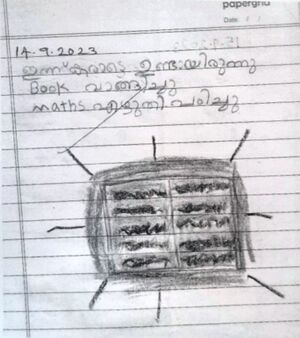 papergrid
Date: / /
14.9.2023
ഇന്ന് കരാട്ടെ ഉണ്ടായിരുന്നു
Book വാങ്ങിച്ചു
maths എഴുതി പഠിച്ചു